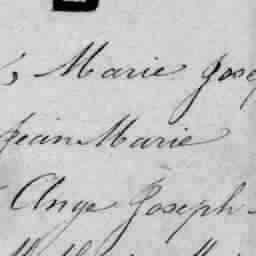 Marie Jose
Jean Marie
Ange Joseph